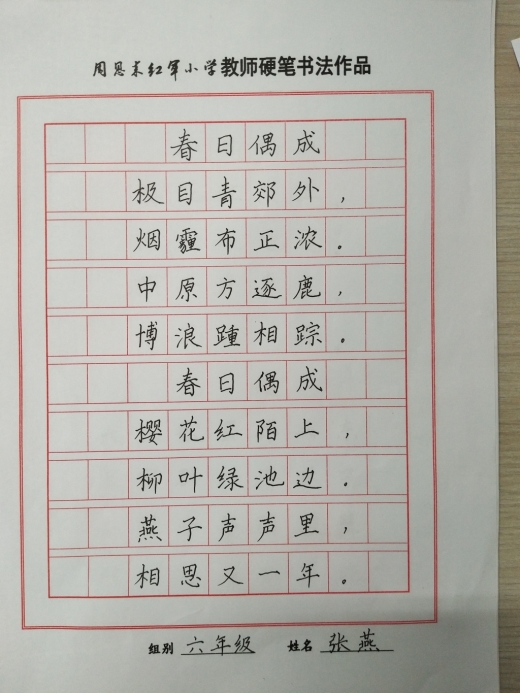 周恩来红军小学教师硬笔书法作品
春日偶成
极目青郊外，
烟霾布正浓。
中原方逐鹿，
博浪踵相踪。
春日偶成
樱花红陌上，
柳叶绿池边。
燕子声声里，
相思又一年。
组别 六年级 姓名 张燕